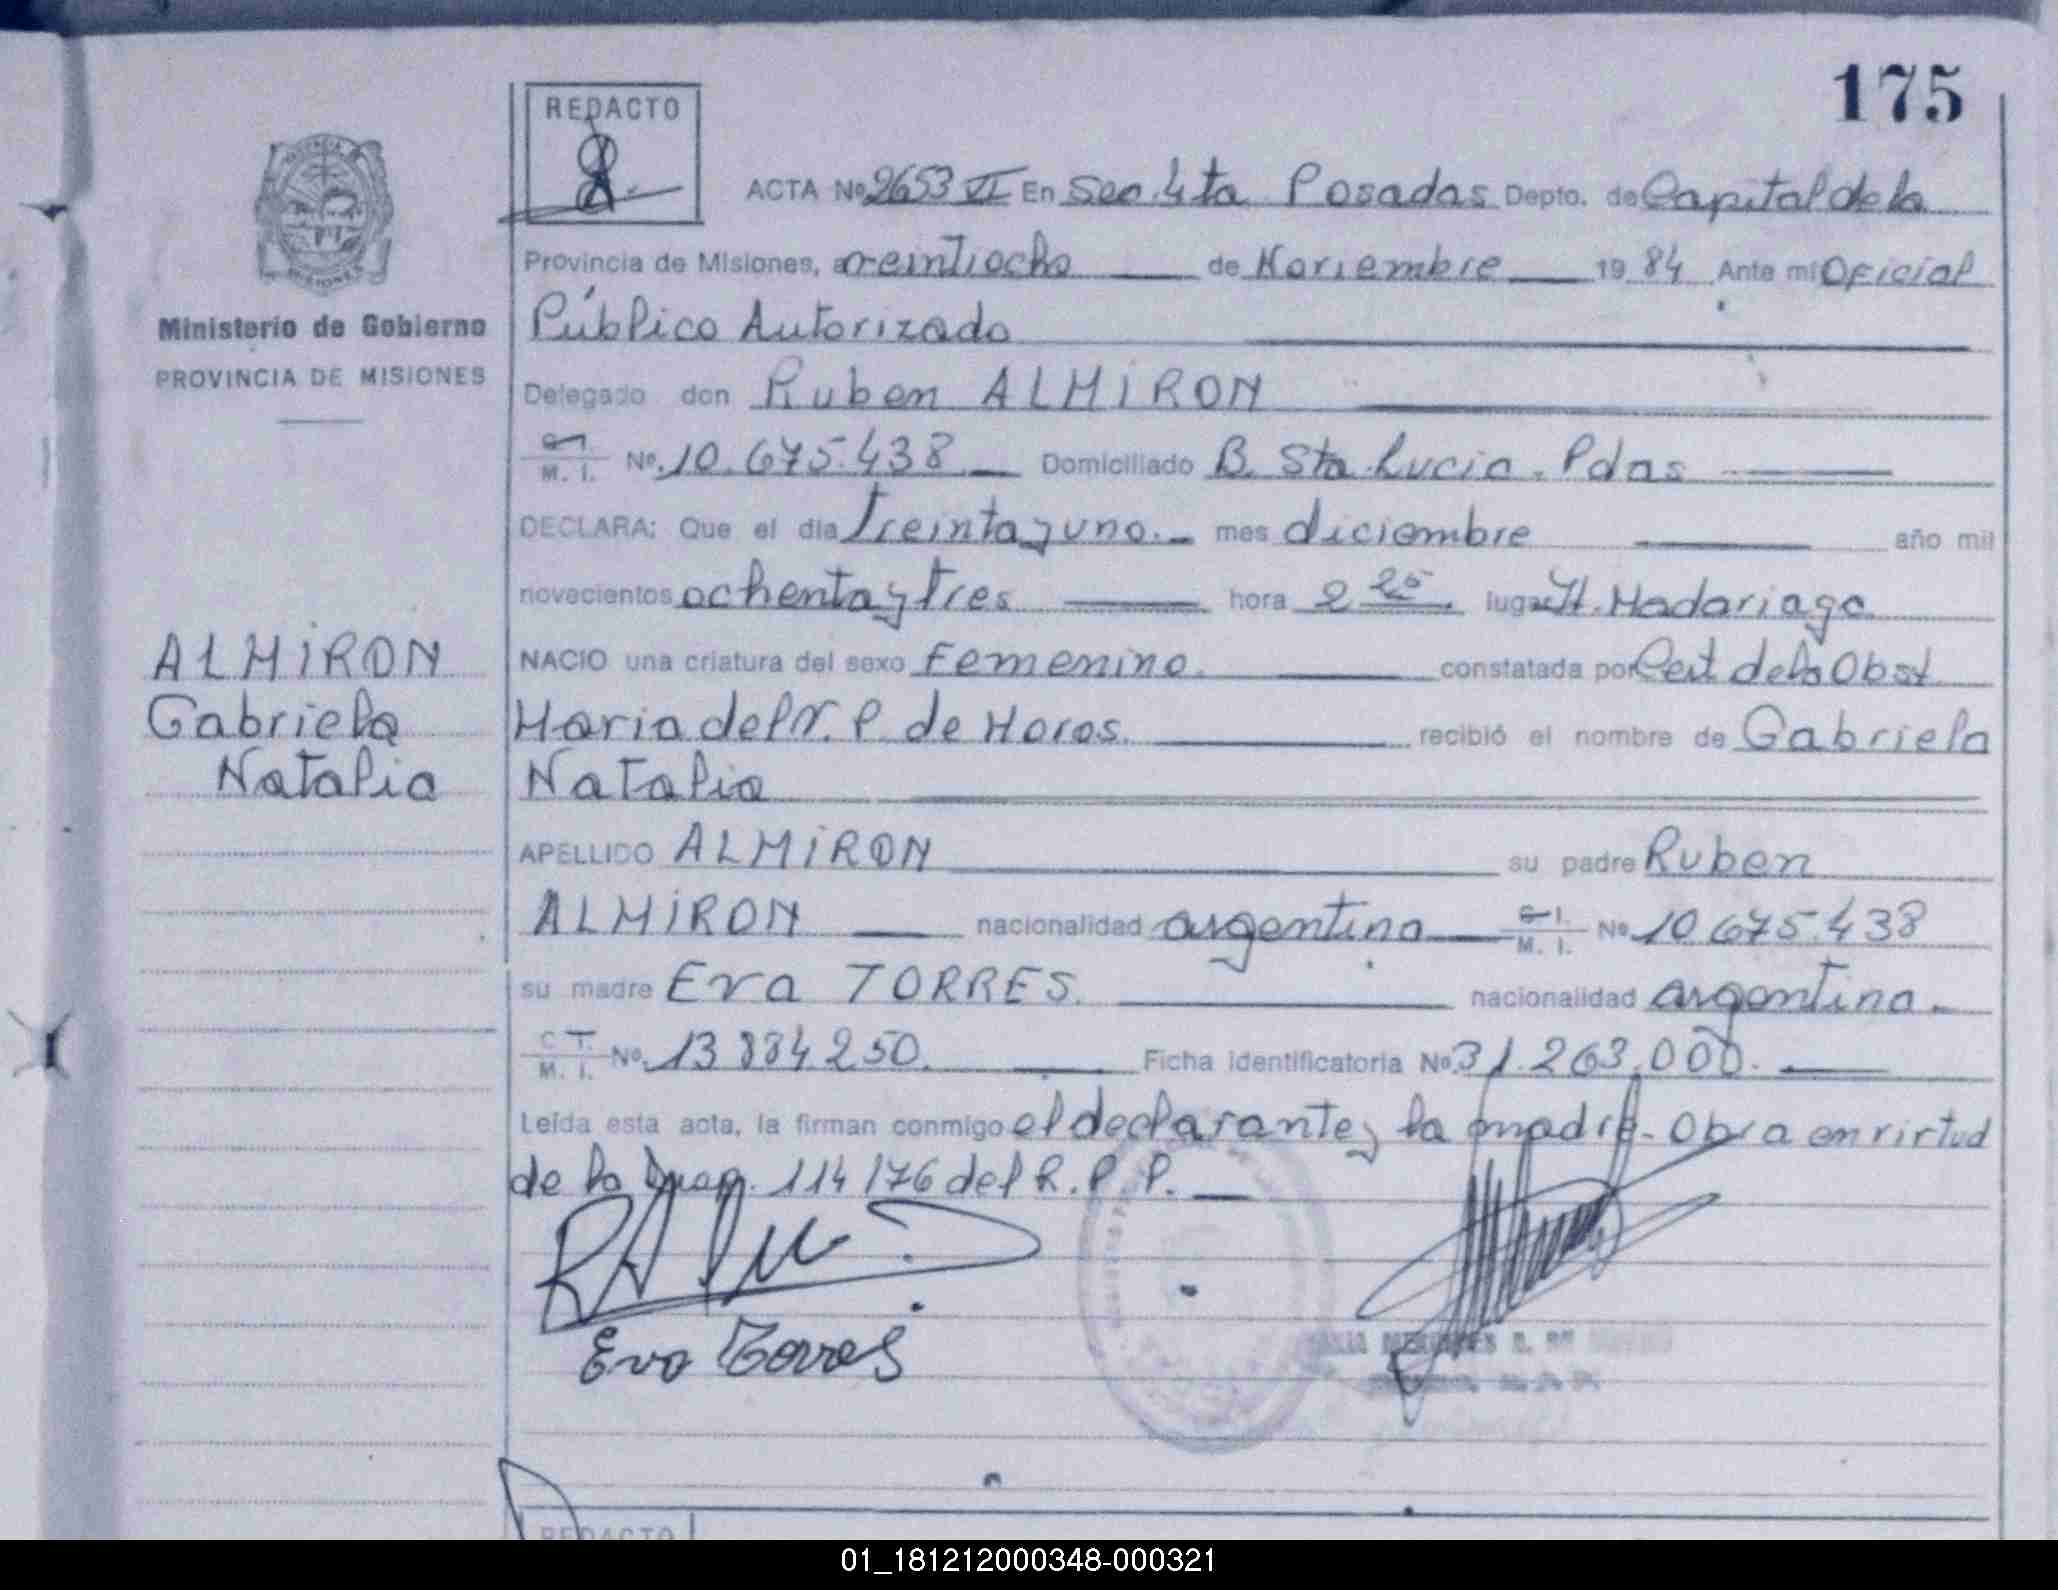 175
REDACTO
ACTA No 2653 VI En Sec. 4ta Posadas Depto. de Capital de la
Provincia de Misiones, a veintiocho de Noviembre 19 84 Ante mí Oficial
Público Autorizado
Delegado don Ruben ALMIRON
M. I. No. 10.675.438 Domiciliado B. Sta. Lucia. Pdas
DECLARA: Que el día treinta y uno mes diciembre año mil
novecientos ochenta y tres hora 2 25 lugar H. Madariaga
NACIO una criatura del sexo Femenino. constatada por Cert de la Obst
Maria del V. P. de Moros. recibió el nombre de Gabriela
Natalia
APELLIDO ALMIRON su padre Ruben
ALMIRON nacionalidad argentina M. I. No 10.675.438
su madre Eva TORRES. nacionalidad argentina.
M. I. No. 13 884 250. Ficha identificatoria No 31.263.000.
Leída esta acta, la firman conmigo el declarante y la madre. Obra en virtud
de la 114/76 del R. P. P.
Eva Torres
Ministerio de Gobierno
PROVINCIA DE MISIONES
ALMIRON
Gabriela
Natalia
REDACTO
01_181212000348-000321